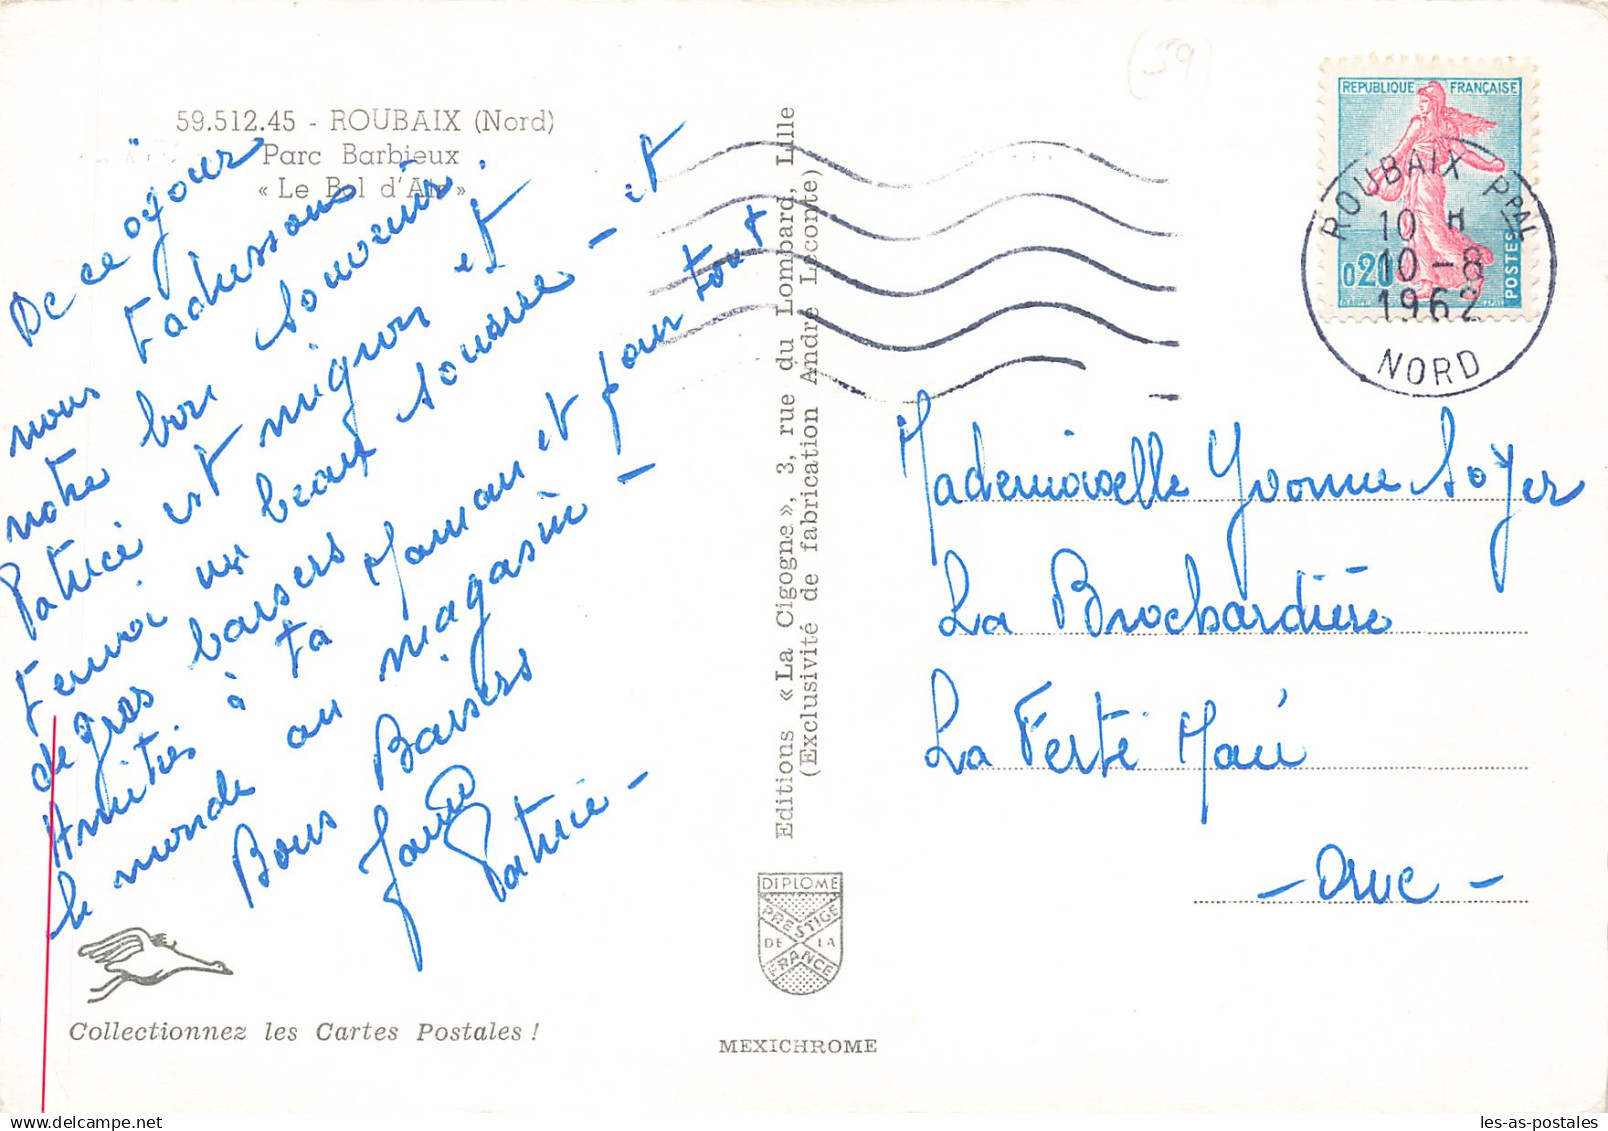 (59)
59.512.45 - ROUBAIX (Nord)
Parc Barbieux
« Le Bol d'Air »
De ce séjour
nous t'adressons
notre bon souvenir.
Patrice est mignon et
t'envoi un beaux sourire - et
de gros baisers
Amitiés à ta Maman et pour tout
le monde au magasin -
Bons Baisers
Patrice -
Collectionnez les Cartes Postales !
Editions « La Cigogne », 3, rue du Lombard, Lille
(Exclusivité de fabrication André Leconte)
DIPLOME
PRESTIGE
DE LA
FRANCE
MEXICHROME
REPUBLIQUE FRANÇAISE
0,20
POSTES
ROUBAIX PPAL
10 H
10 - 8
1962
NORD
Mademoiselle Yvonne Soyer
La Brochardière
La Ferté Macé
- Orne -
les-as-postales
delcampe.net